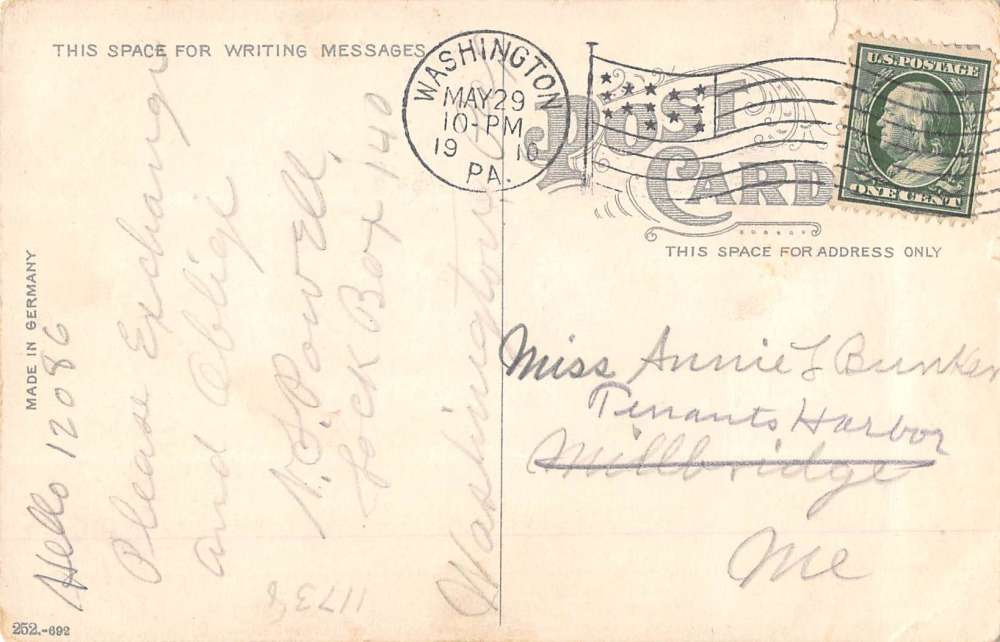 THIS SPACE FOR WRITING MESSAGES
WASHINGTON
MAY 29
10-PM
1910
PA.
POST
CARD
U.S. POSTAGE
ONE CENT
THIS SPACE FOR ADDRESS ONLY
MADE IN GERMANY
Hello 12086
Please Exchange
and Oblige
Powell
Lock Box 140
Washington
Miss Annie L Bunker
Tenants Harbor
Millbridge
Me
1173
252.-692